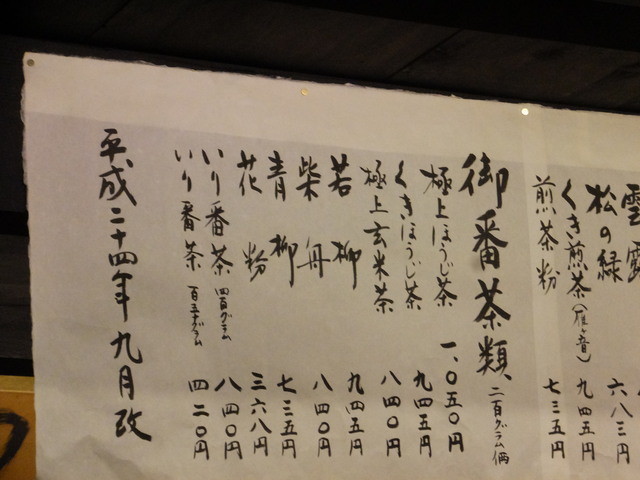 雲露
松の緑 六八三円
くき煎茶(雁ヶ音) 九四五円
煎茶粉 七三五円
御番茶類 二百グラム価
極上ほうじ茶 一、〇五〇円
くきほうじ茶 九四五円
極上玄米茶 八四〇円
若柳 九四五円
柴舟 八四〇円
青柳 七三五円
花粉 三六八円
いり番茶 四百グラム 八四〇円
いり番茶 百五十グラム 四二〇円
平成二十四年九月改